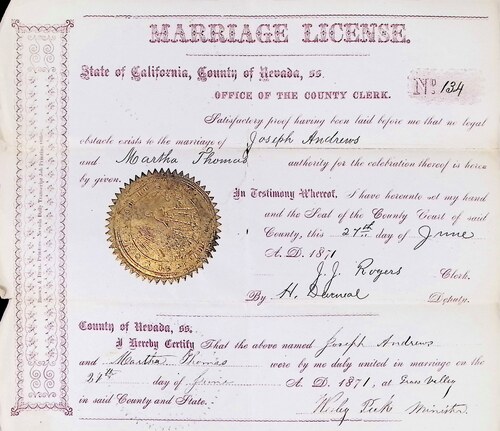 MARRIAGE LICENSE.
State of California, County of Nevada, ss.
No 134
OFFICE OF THE COUNTY CLERK.
Satisfactory proof having been laid before me that no legal
obstacle exists to the marriage of Joseph Andrews
and Martha Thomas authority for the celebration thereof is here
by given.
In Testimony Whereof, I have hereunto set my hand
and the Seal of the County Court of said
County, this 27th day of June
A. D. 1871
J. J. Rogers Clerk.
By H. Deputy.
County of Nevada, ss.
I Hereby Certify That the above named Joseph Andrews
and Martha Thomas were by me duly united in marriage on the
27th day of June A. D. 1871, at Grass Valley
in said County and State.
Minister